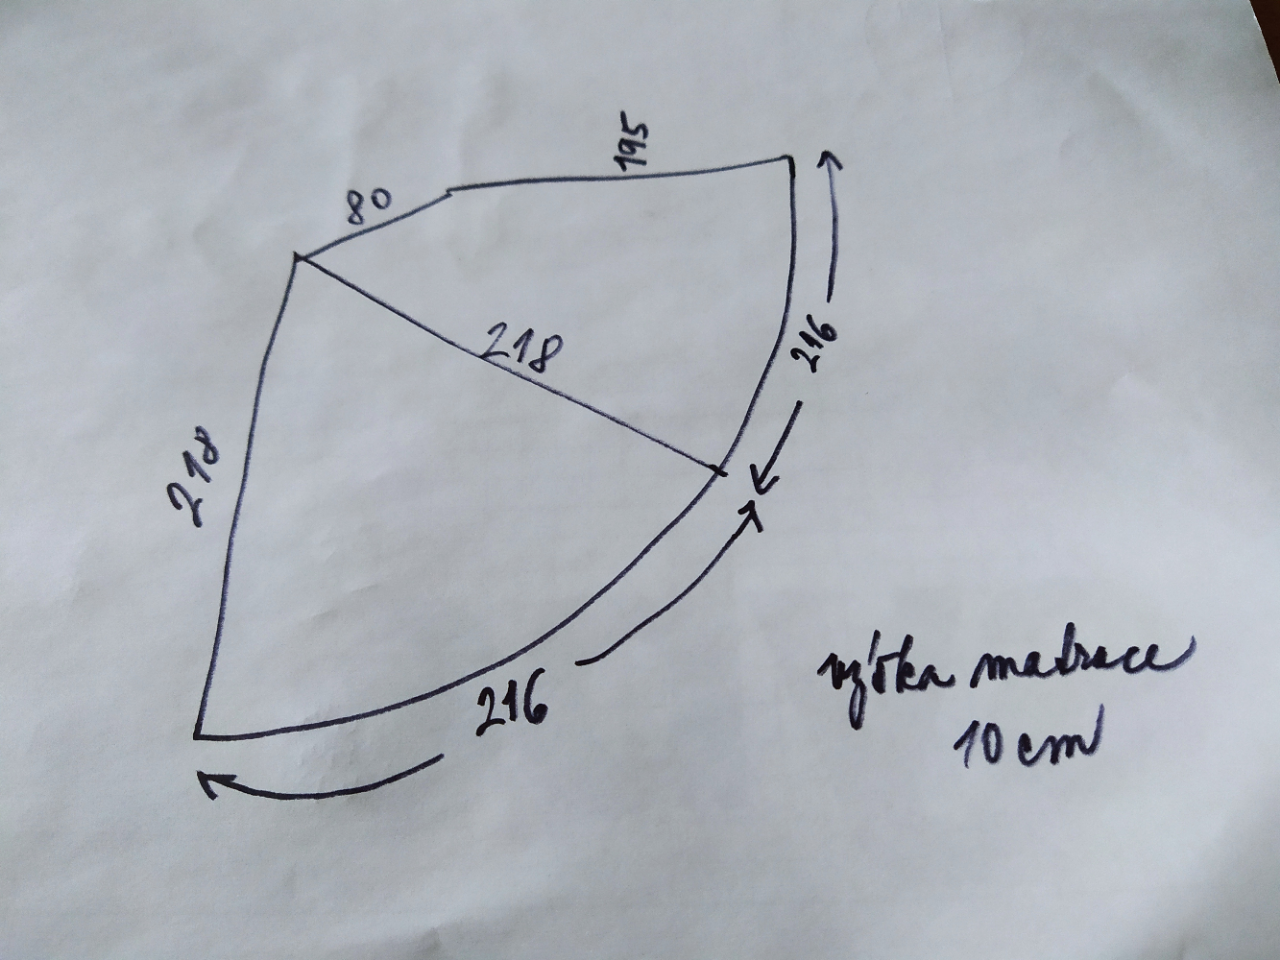 195
80
218
216
218
216
výška matrace
10 cm